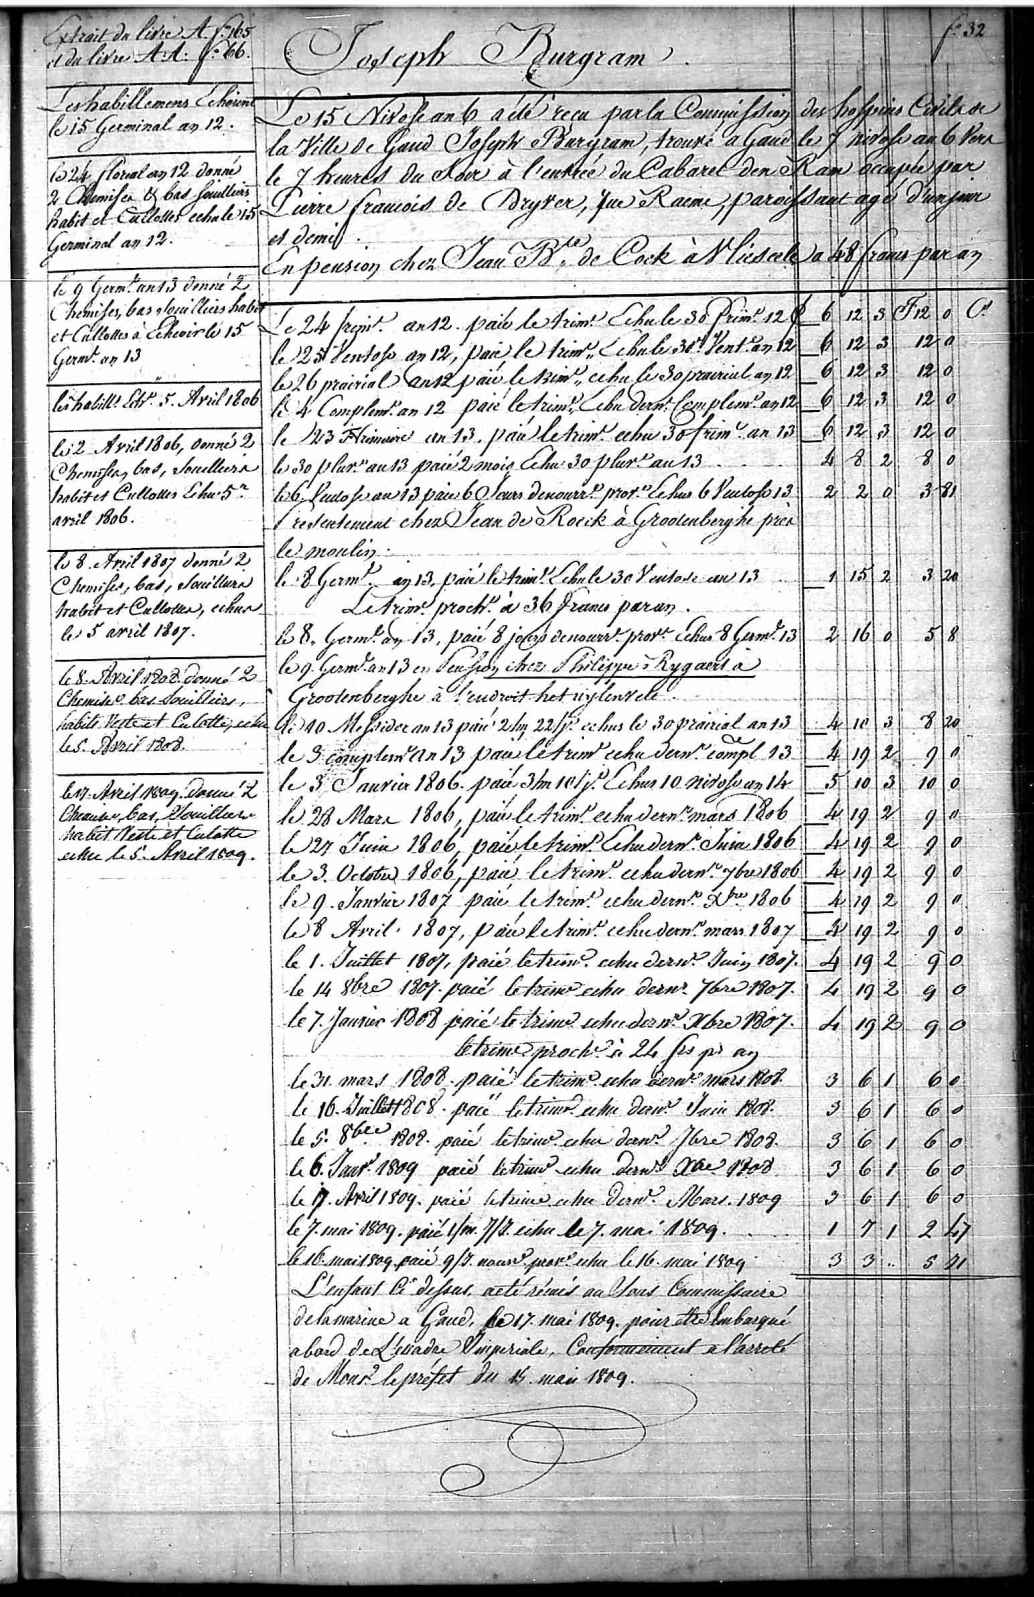 Extrait du livre A. fo. 165
et du livre AA. fo. 66.
fo. 32
Joseph Burgram.
Les habillemens Echoient
le 15 Germinal an 12.
le 24 floreal an 12 donné
2 Chemises & bas souilliers
habit et Culottes echu le 15
Germinal an 12.
le 9 Germl. an 13 donné 2
Chemises, bas Souilliers habit
et Culottes à Echeoir le 15
Germl. an 13
les habillt. Echt. 5. Avril 1806
le 2. Avril 1806, donné 2
Chemises, bas, Souilliers
habit et Culottes Echus 5e
avril 1806.
le 8. Avril 1807 donné 2
Chemises, bas, Souilliers
habit et Culottes, echus
le 5 avril 1807.
le 8. Avril 1808 donné 2
Chemises bas Souilliers,
habit Veste et Culotte, echu
le 5. Avril 1808.
le 17. Avril 1809. donné 2
Chemises, bas, Souilliers
habit Veste et Culotte
echu le 5. Avril 1809.
Le 15 Nivose an 6 a été recu par la Commission des hospices Civils de
la Ville de Gand Joseph Burgram, trouvé a Gand le 7 nivose an 6 Vers
le 7 heures du Soir à l'entrée du Cabaret den Ram occupée par
Pierre francois de Dryver, Rue Raeme, paroissant agé d'un jour
et demi.
En pension chez Jean Bte. de Cock à a 48 francs par an
Le 24 an 12. paié le trimt. Echu le 30 frimre. 12 £ 6 12 3 F 12 0 Cs
le 25 Ventose an 12, paié le trimt. Echu le 30 Vent. an 12 6 12 3 12 0
le 26 prairial an 12 paié le trimt. echu le 30 prairial an 12 6 12 3 12 0
le 4 Complemt. an 12 paié le trimt. Echu dernr. Complemt. an 12 6 12 3 12 0
le 23 Frimaire an 13. paié le trimt. echu 30 frimr. an 13 6 12 3 12 0
le 30 pluvr. an 13 paié 2 mois Echu 30 pluvr. an 13 4 8 2 8 0
le 6 Ventose an 13 paié 6 Jours de nourre. provre. Echus 6 Ventose 13 2 2 0 3 81
presentement chez Jean de Roeck à Grootenberghe près
le moulin.
le 8 Germl. an 13, paié le trimt. Echu le 30 Ventose an 13 1 15 2 3 20
Le trimt. procht. à 36 francs par an.
le 8. Germl. an 13, paié 8 jours de nourre. provre. Echus 8 Germl. 13 2 16 0 5 8
le 9. Germl. an 13 en Pension chez Philippe Rygaert à
Grootenberghe à l'endroit het uylenvelt
le 10 Messidor an 13 paié 2 m 22 j. echus le 30 prairial an 13 4 10 3 8 20
le 3 complemt. an 13 paié le trimt. echu dernr. compl. 13 4 19 2 9 0
le 3 Janvier 1806. paié 3 m 10 j. Echus 10 nivose an 14 5 10 3 10 0
le 28 Mars 1806, paié le trimt. echu dernr. mars 1806 4 19 2 9 0
le 27 Juin 1806, paié le trimt. Echu dernr. Juin 1806 4 19 2 9 0
le 3. Octobre 1806, paié le trimt. echu dernr. 7bre 1806 4 19 2 9 0
le 9. Janvier 1807 paié le trimt. echu dernr. Xbre 1806 4 19 2 9 0
le 8 Avril 1807, paié le trimt. echu dernr. mars 1807 4 19 2 9 0
le 1. Juillet 1807, paié le trimt. echu dernr. Juin 1807. 4 19 2 9 0
le 14 8bre 1807. paié le trime. echu dernr. 7bre 1807. 4 19 2 9 0
le 7. Janvier 1808 paié le trime. echu dernr. Xbre 1807. 4 19 2 9 0
le trime proche. à 24 frs pr an
le 31. mars 1808. paié le trime. echu dernr. mars 1808. 3 6 1 6 0
le 16. Juillet 1808. paié le trime. echu dernr. Juin 1808. 3 6 1 6 0
le 5. 8bre. 1808. paié le trime. echu dernr. 7bre 1808. 3 6 1 6 0
le 6. Janvr. 1809 paié le trime echu dernr. Xbre 1808 3 6 1 6 0
le 17. Avril 1809. paié le trime echu dernr. Mars. 1809 3 6 1 6 0
le 7. mai 1809. paié 1/m. 7/J. echu le 7. mai 1809. 1 7 1 2 47
le 16. mai 1809. paié 9/J. nourre. provre. echu le 16. mai 1809 3 3 .. 5 71
L'enfant Ci dessus a été rémis au Sous Commissaire
de la marine a Gand, le 17. mai 1809. pour etre Embarqué
abord de L'éscadre Imperiale, Conformément a l'arreté
de Monsr. le préfet du 15. mai 1809.